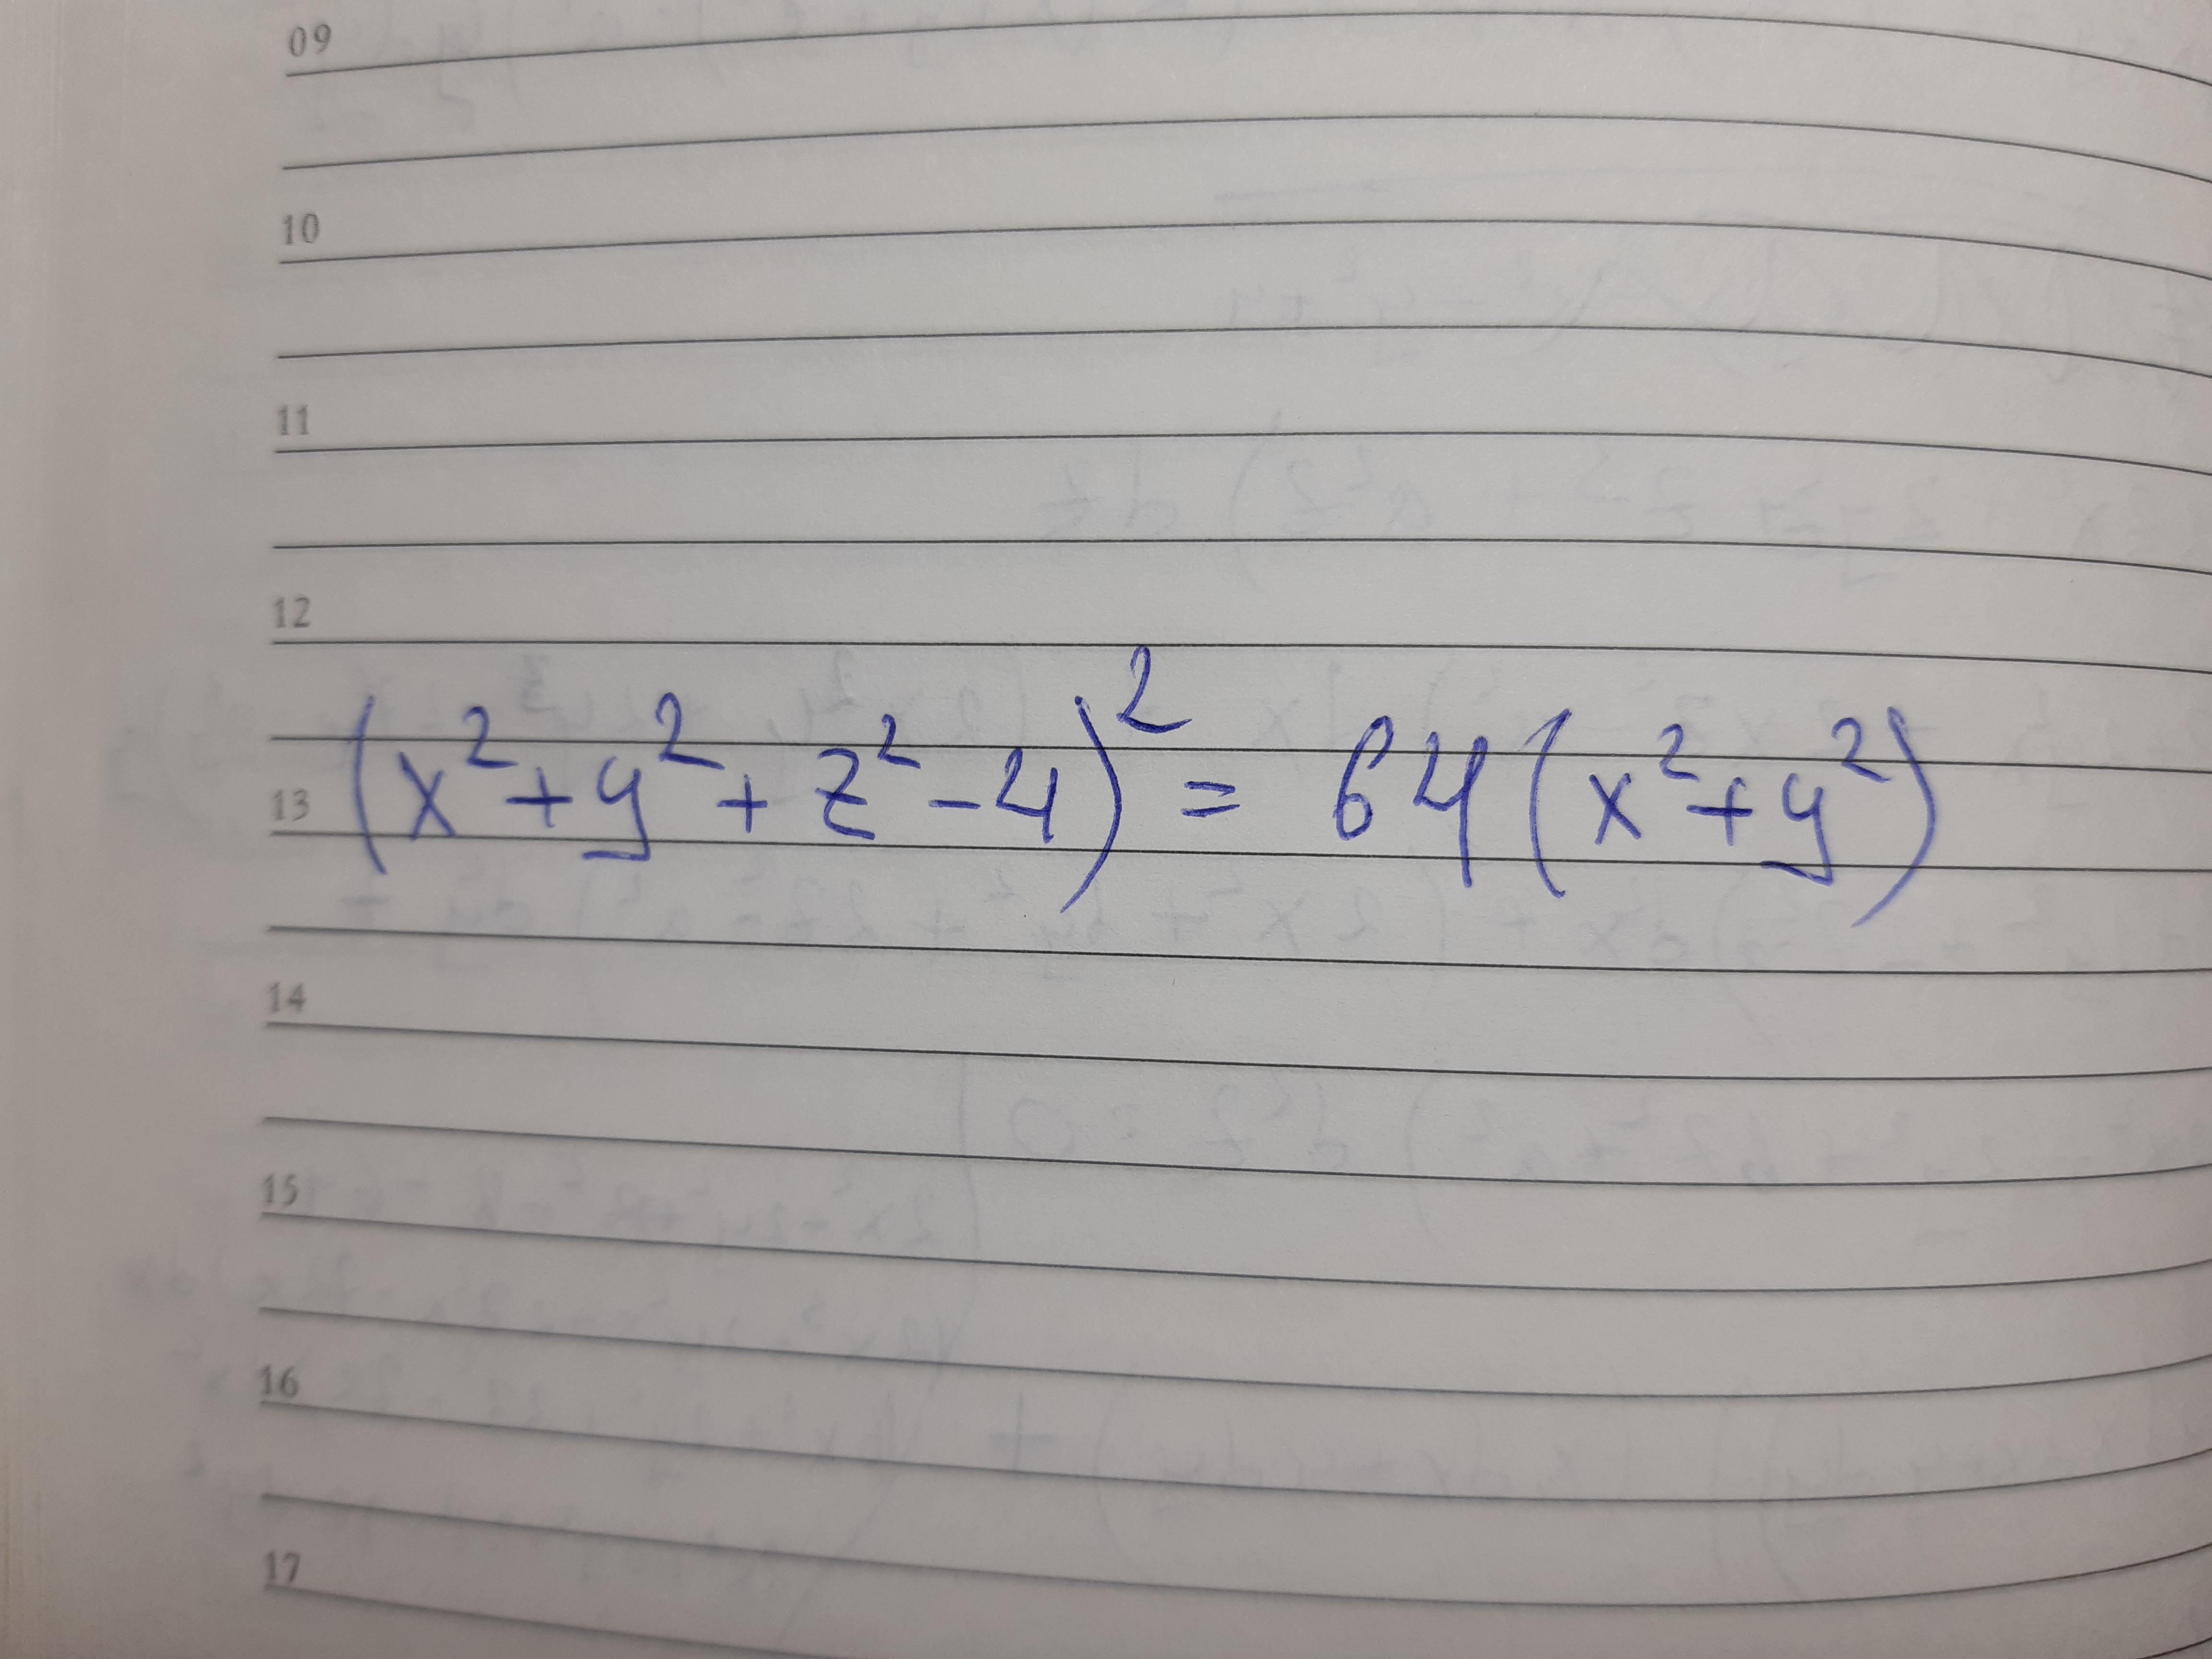 09
10
11
12
(x²+y²+z²-4)² = 64(x²+y²)
13
14
15
16
17